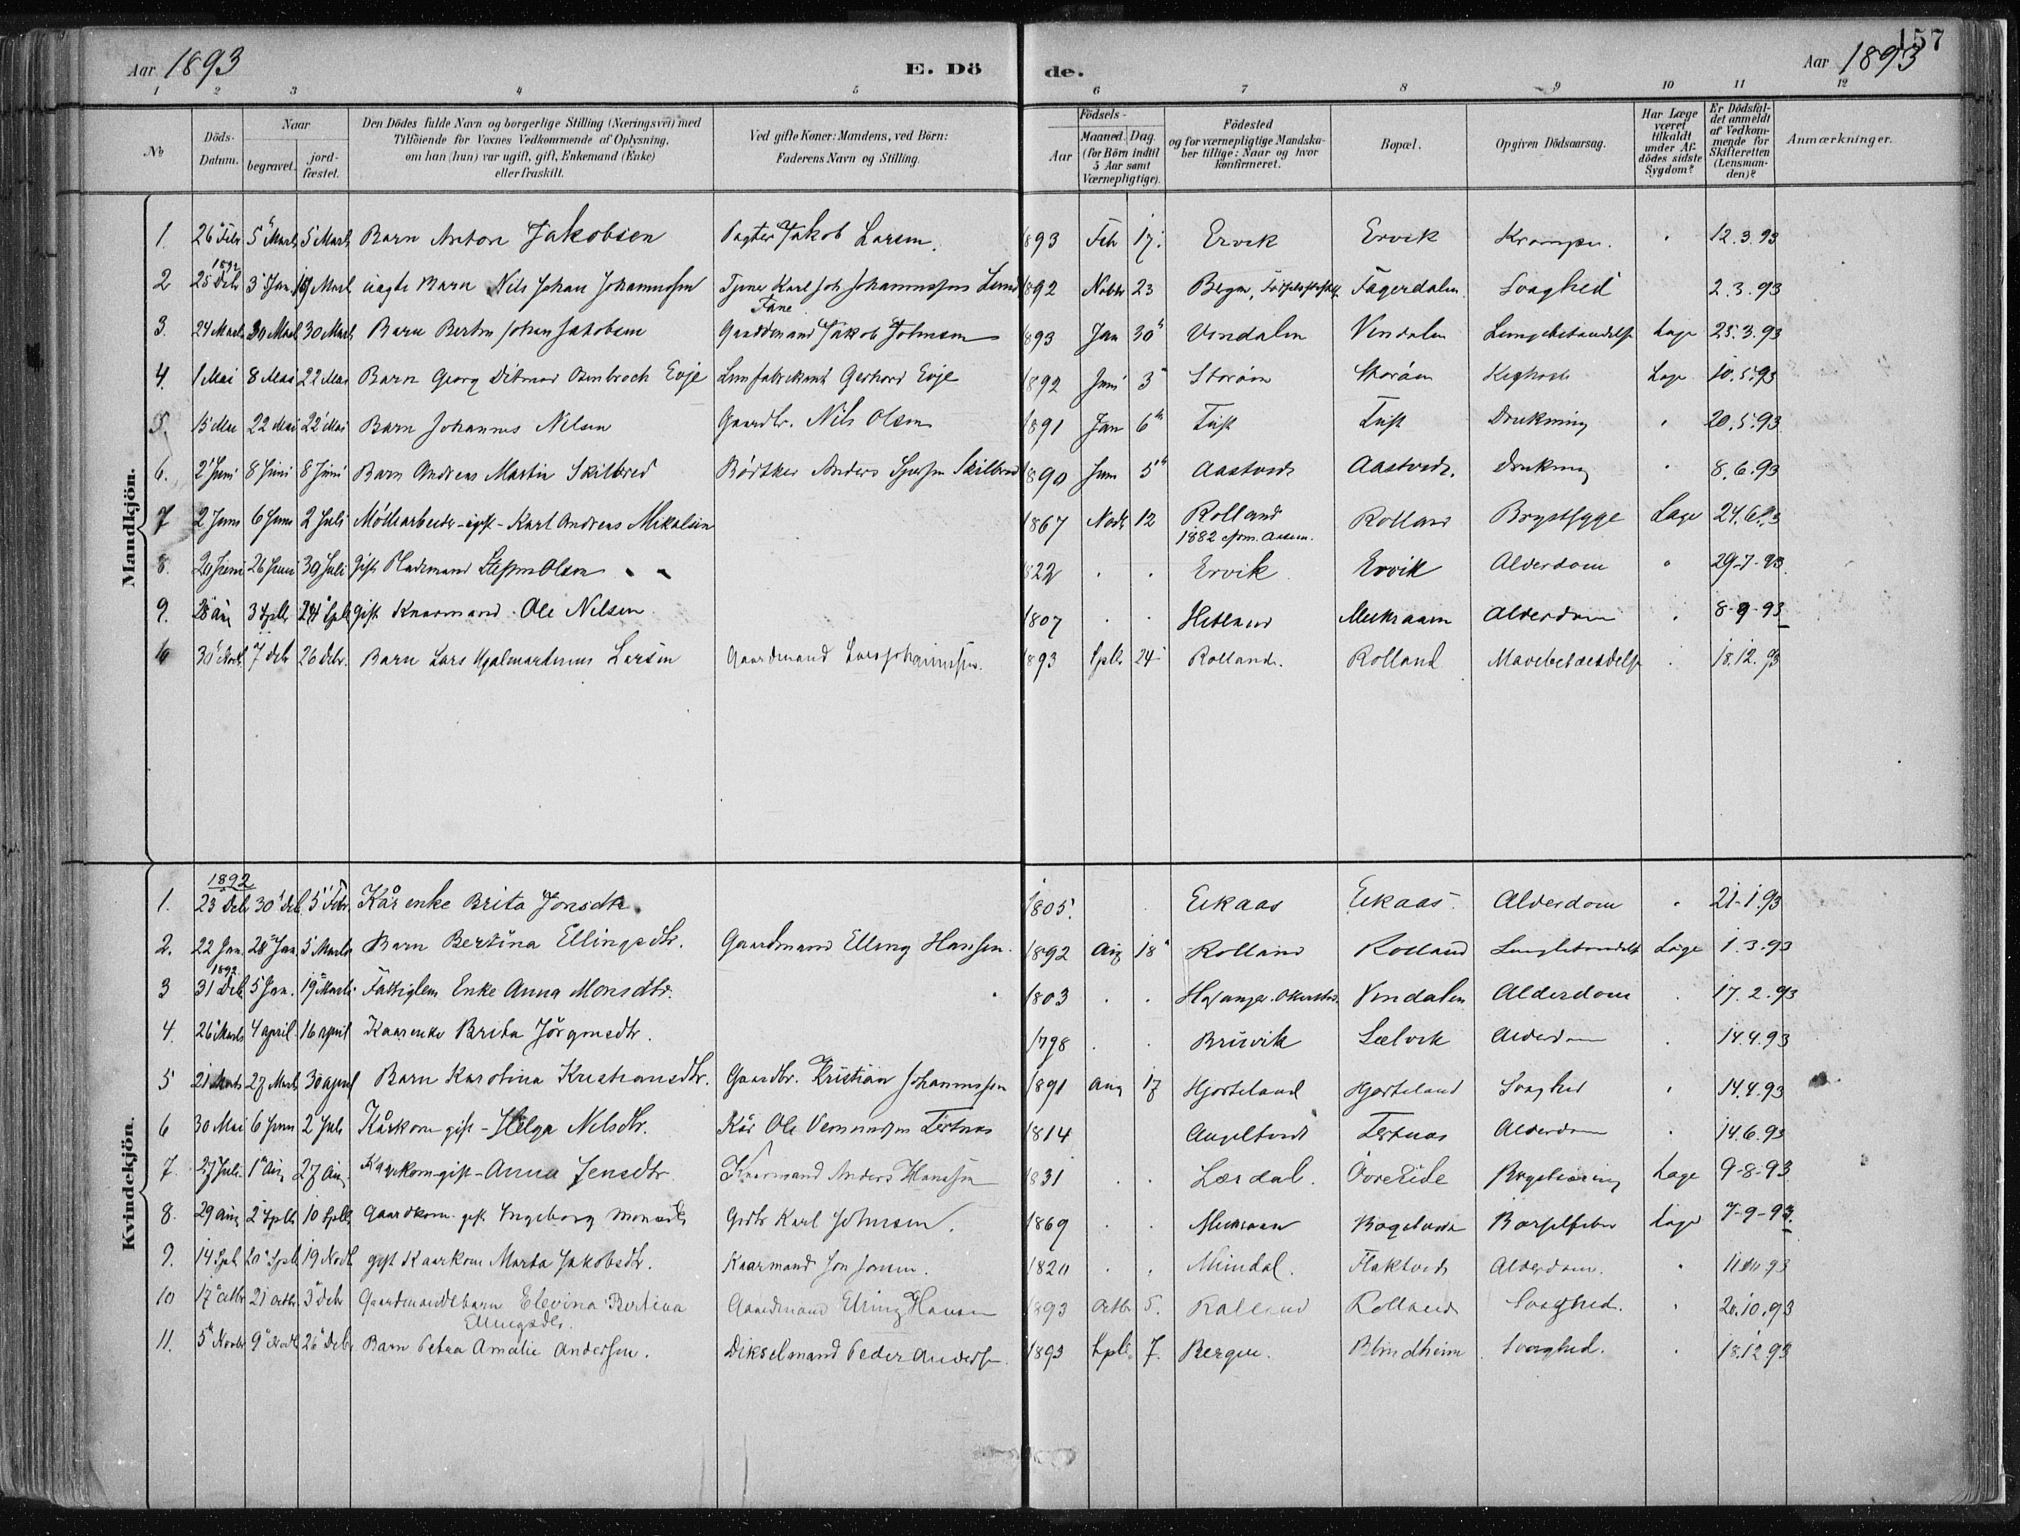 157
Aar 1893
E. Döde.
Aar 1893
1 2 3 4 5 6 7 8 9 10 11 12
No
Döds-Datum.
Naar
begravet.
jordfæstet.
Den Dödes fulde Navn og borgerlige Stilling (Næringsvei) med
Tilföiende för Voxnes Vedkommende af Oplysning,
om han (hun) var ugift, gift, Enkemand (Enke)
eller fraskilt.
Ved gifte Koner: Mandens, ved Börn:
Faderens Navn og Stilling.
Födsels-
Aar
Maaned. Dag.
(for Börn indtil
5 Aar samt
Værnepligtige).
Födested
og for værnepligtige Mandskaber tillige: Naar og hvor
konfirmeret.
Bopæl.
Opgiven Dödsaarsag.
Har Læge
været
tilkaldt
under Afdödes sidste
Sygdom?
Er Dödsfaldet anmeldt
af Vedkommende for
Skifteretten
(Lensmanden)?
Anmærkninger.
Mandkjön.
1. 26 Febr 5 Marts 5 Marts Barn Anton Jakobsen Pagter Jakob Larsen. 1893 Feb 17. Ervik Ervik Krampe. 12.3.93
1892
2 25 Debr 3 Jan. 19 Marts uægte Barn Nils Johan Johannessen Tjener Karl Joh. Johannessens Lund 1892 Novbr 23 Bergen, Fagerdalen Svaghed 2.3.93
Fane
3. 24 Marts 30 Marts 30 Marts Barn Johan Jakobsen Gaardmand Jakob Johnsen 1893 Jan 30 Vindalen Læge 25.3.93
4. 1 Mai 8 Mai 22 Mai Barn Georg Ditmar Evje Limfabrikant Gerhard Evje 1892 Juni 3 Storåen Storåen Kighoste Læge 10.5.93
5. 15 Mai 22 Mai 22 Mai Barn Johannes Nilsen Gaardbr. Nils Olsen 1891 Jan 6 Drukning 20.5.93
6. 2 Juni 8 Juni 8 Juni Barn Andreas Martin Skilbred Bødker Anders Skilbred 1890 Juni 5 Aastvedt Aastvedt. Drukning 8.6.93
7 2 Juni 6 Juni 2 Juli Møllearbeider - ugift - Karl Andreas Mikalsen 1867 Novb 12 Rolland Rolland Brystsyge Læge 24.6.93
1882 Aasen.
8. 20 Juni 26 Juni 30 Juli gift Pladsmand Olsen 1822 Ervik Ervik Alderdom 29-7-93
9. 28 Aug 3 Septbr 24 Septbr gift Kaarmand. Ole Nilsen 1807 Hetland Alderdom 8-9-93
10 30 Novb 7 Debr 26 Debr. Barn Lars Hjalmar Larsen Gaardmand Lars Johannessen. 1893 Septbr 24 Rolland. Rolland Mavebetændelse 18.12.93
Kvindekjön.
1892
1. 23 Deb 30 Deb 5 Febr. Kår enke Brita Jonsdtr. 1805. Eikaas Eikaas Alderdom 21-1.93
2. 22 Jan. 28 Jan. 5 Marts Barn Bertina Ellingsdtr. Gaardmand Elling Hansen. 1892 Aug 18 Rolland Rolland Lungebetændelse Læge 1.3.93
1892
3 31 Deb. 5 Jan. 19 Marts Fattiglem Enke Anna Monsdtr. 1803 Vindalen Alderdom 17.2.93
4. 26 Marts 4 April. 16 April Kaarenke Brita Jörgensdtr. 1798 Bruvik Sælvik Alderdom 14.4.93
5 21 Marts 27 Marts 30 April Barn Karolina Kristiansdtr. Gaardbr. Kristian Johannessen 1891 Aug 17 Hjorteland Hjorteland Svaghed 14.4.93
6 30 Mai 6 Juni 2 Juli Kårkone gift - Helga Nilsdtr. Kår Ole Vemundsen Tertnæs 1814 Tertnæs Alderdom 14.6.93
7. 27 Juli. 1 Aug 27 Aug Kaarkone gift - Anna Jensdtr. Kaarmand Anders Hanssen 1831 Lærdal. Övre Eide Læge 9-8-93
8. 29 Aug 2 Septb 10 Septb Gaardkone gift Ingeborg Monsdtr Grdbr Karl Johnsen. 1869 Barselfeber Læge 7-9-93.
9. 14 Septb 20 Septb 19 Novb gift Kaarkone Marta Jakobsdtr. Kaarmand Jon Jonsen. 1820 Flaktvedt Alderdom.
10 17 Octbr 21 Octbr 3 Debr Gaardmandsbarn Elevina Bertina Gaardmand Elling Hansen 1893 Octbr 5. Rolland Rolland Svaghed. 20.10.93
Ellingsdtr.
11. 5 Novbr 9 Novb 26 Debr Barn Petra Amalie Andersen. Dikselmand Peder Andersen. 1893 Septb. 7. Bergen. Blindheim Svaghed. 18.12.93